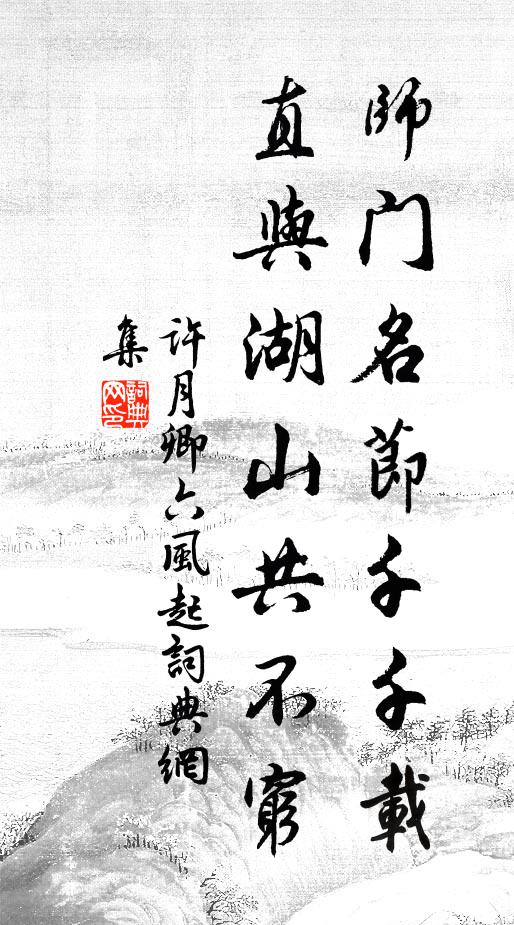 師門名節千千載
直與湖山共不窮
許月卿六風起詞典網
集
詞典
网印